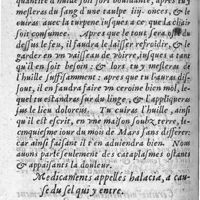 quantité d'huile soit fort bouillante, apres tu y
mesleras du sang d'vne taulpe iiij. onces, & le
cuiras auec la turpene iusques a ce que la chair
soit consumee. Apres que le tout sera osté du
dessus le feu, il faudra le laisser refroidir, & le
garder en vn vaisseau de voirre, iusques a tant
qu'il en soit besoin: & lors tu y mesleras de
l'huille suffisamment: apres que tu l'auras dis-
sout, il en faudra faire vn ceroine bien mol, le-
quel tu estandras sur du linge, & l'appliqueras
sus le lieu doloreux. Tu cuiras l'huille, ainsi
qu'il est escrit, en vne maison soubz terre, le
cinquiesme iour du mois de Mars sans differer:
car ainsi faisant il t'en aduiendra bien. Nous
auons parfeulement des cataplasmes ostants
& appaisants la douleur.
Medicaments appellés halacia, a cau-
se du sel qui y entre.